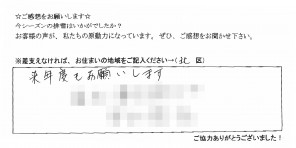 ☆ご感想をお願いします☆
今シーズンの排雪はいかがでしたか？
お客様の声が、私たちの原動力になっています。ぜひ、ご感想をお聞かせ下さい。
※差支えなければ、お住まいの地域をご記入ください→（北 区）
来年度もお願いします
ご協力ありがとうございました！